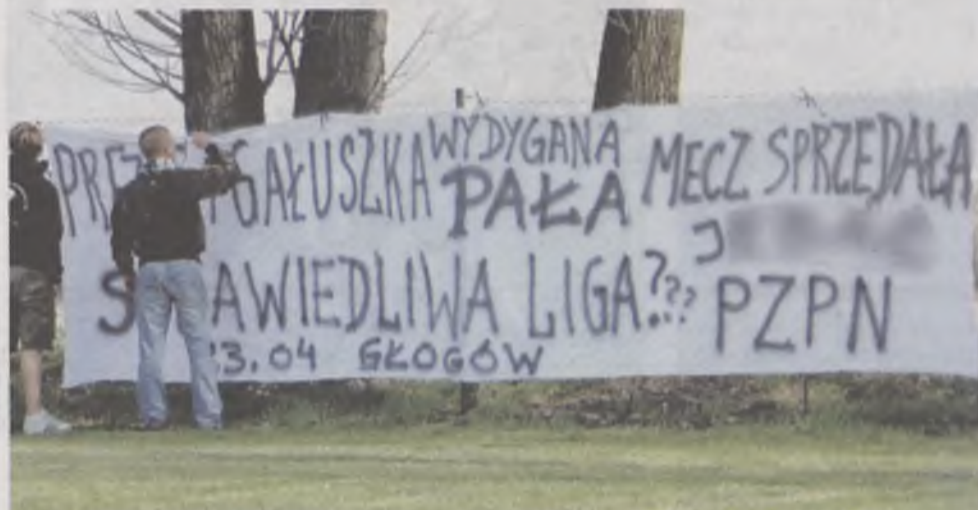 PRE GAŁUSZKA WYDYGANA PAŁA MECZ SPRZEDAŁA
S AWIEDLIWA LIGA??? J PZPN
3.04 GŁOGÓW